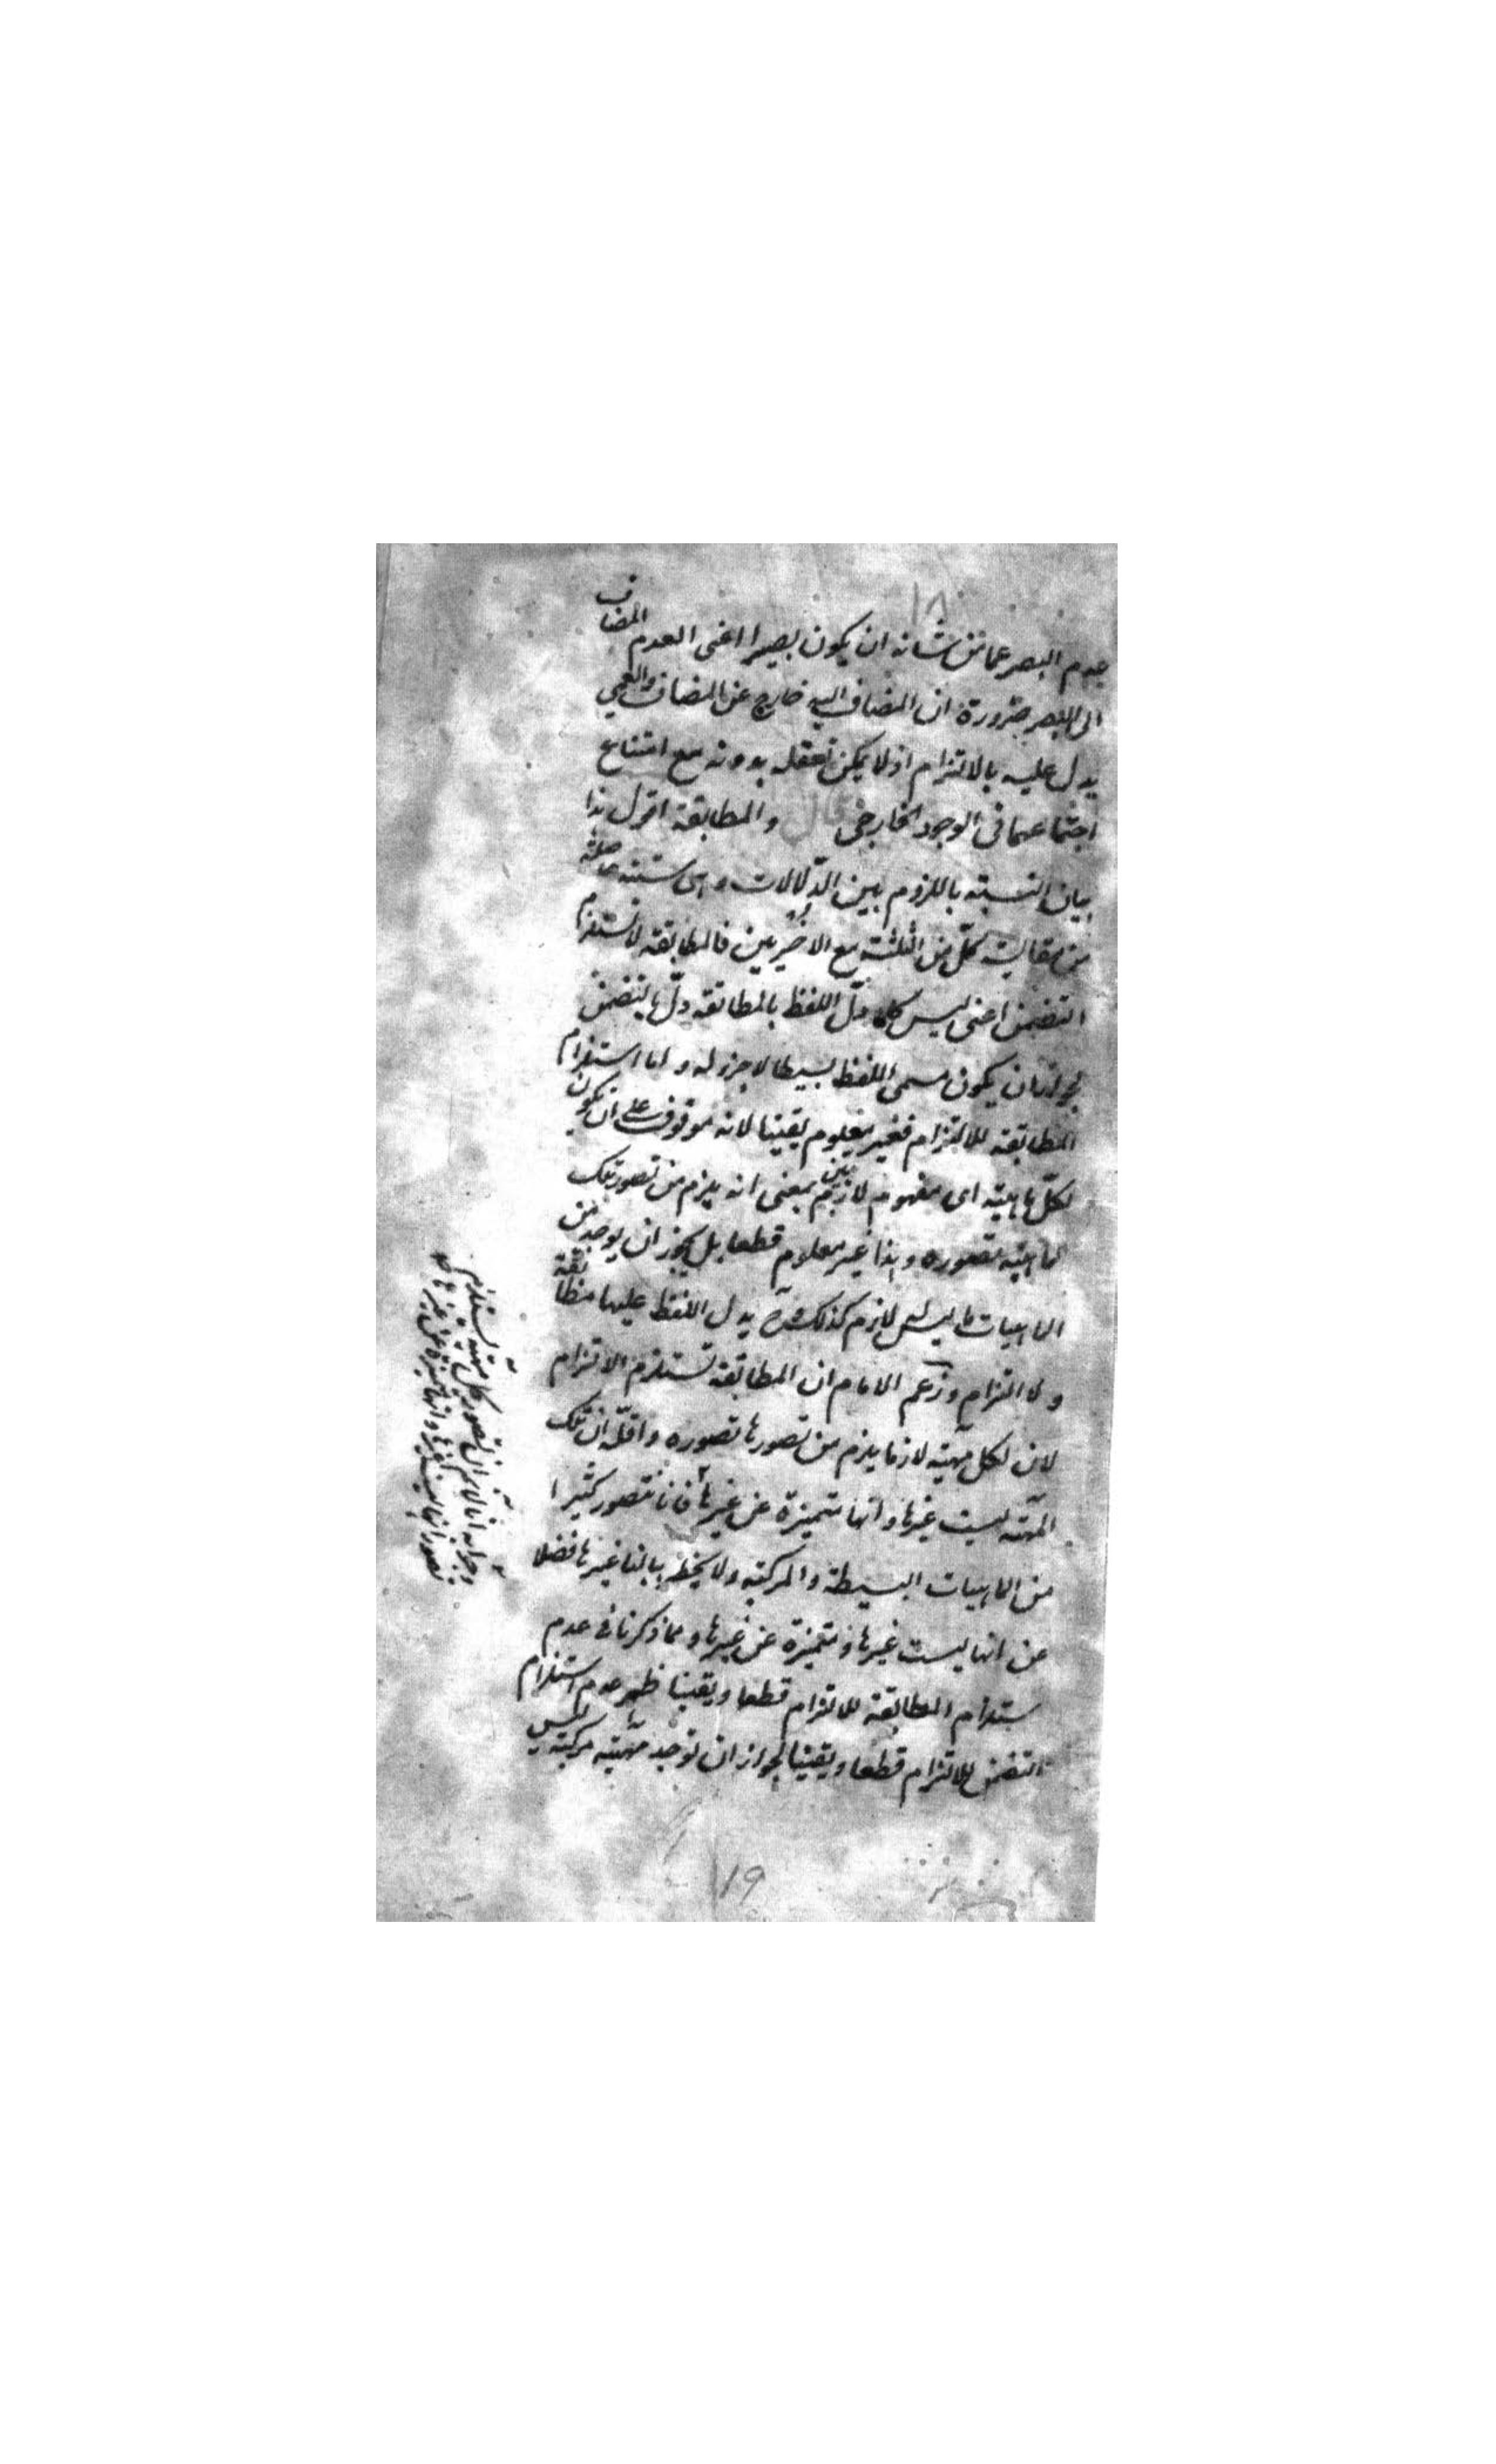 ١٨
عدم البصر عما من شانه ان يكون بصيرا اعنى العدم المضاف
الى البصر ضرورة ان المضاف اليه خارج عن المضاف والعمى
يدل عليه بالالتزام اذ لا يمكن تعقله بدونه مع امتناع
اجتماعهما فى الوجود الخارجى قال والمطابقة اقول هذا
بيان النسبة باللزوم بين الدّلالات وهى ستة حاصلة
من مقايسة كلّ من الثلثة مع الاخيريين فالمطابقة لا تستلزم
التضمن اعنى ليس كلما دلّ اللفظ بالمطابقة دلّ بالتضمن
لجواز ان يكون مسمى اللفظ بسيطا لا جزء له واما استلزام
المطابقة للالتزام فغير معلوم يقينا لانه موقوف على ان يكون
لكلّ ماهية اى مفهوم لازم بين بمعنى انه يلزم من تصور تلك
الماهية تصوره وهذا غير معلوم قطعا بل يجوز ان يوجد من
الماهيات ما ليس له لازم كذلك يدل اللفظ عليها مطابقة
ولا التزام وزعم الامام ان المطابقة تستلزم الالتزام
لان لكل مهية لازما يلزم من تصورها تصوره واقلّه ان تلك
المهية ليست غيرها وانها متميزة عن غيرها فانا نتصور كثيرا
من الماهيات البسيطة والمركبة ولا يخطر ببالنا غيرها فضلا
عن انها ليست غيرها ومتميزة عن غيرها ومما ذكرنا فى عدم
ستلزام المطابقة للالتزام قطعا ويقينا ظهر عدم استلزام
التضمن للالتزام قطعا ويقينا لجواز ان توجد مهية مركبة ليس
وجوابه انا لا نم ان تصور كل مهية يستلزم
تصور انها ليست غيرها وانها متميزة عن غيرها
19